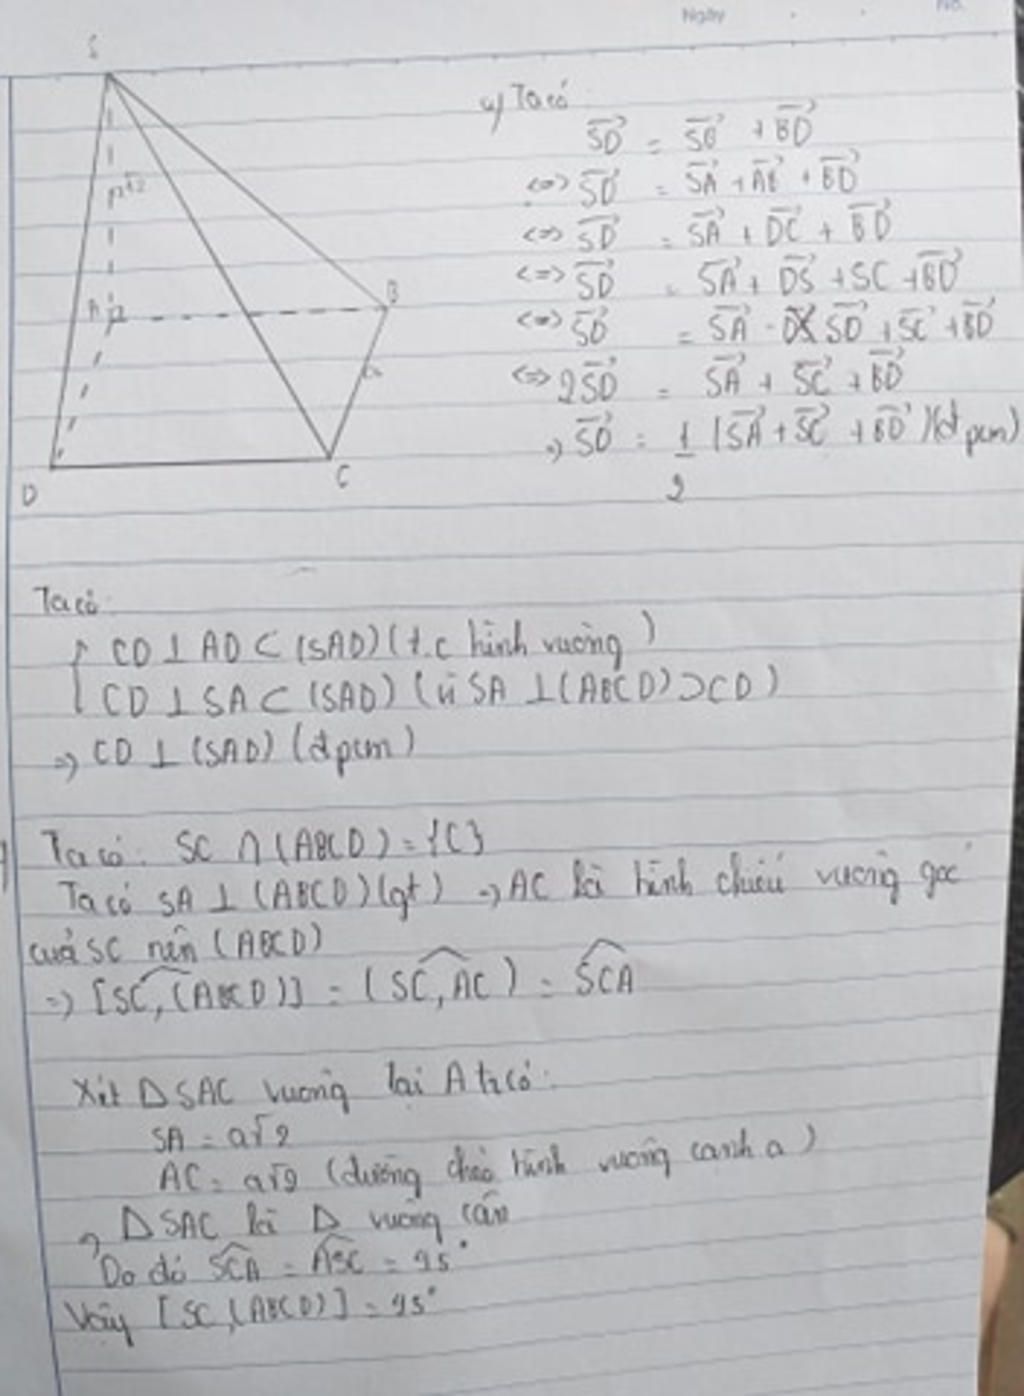 Ngày No.
S
a√2
A
B
a
D
C
a) Ta có
SD→ = SB→ + BD→
<=> SD→ = SA→ + AB→ + BD→
<=> SD→ = SA→ + DC→ + BD→
<=> SD→ = SA→ + DS→ + SC + BD→
<=> SD→ = SA→ - SD→ + SC→ + BD→
<=> 2SD→ = SA→ + SC→ + BD→
=> SD→ = 1/2 (SA→ + SC→ + BD→) (đpcm)
Ta có:
{ CD ⊥ AD ⊂ (SAD) (t.c hình vuông)
CD ⊥ SA ⊂ (SAD) (vì SA ⊥ (ABCD) ⊃ CD)
=> CD ⊥ (SAD) (đpcm)
Ta có: SC ∩ (ABCD) = {C}
Ta có SA ⊥ (ABCD) (gt) => AC là hình chiếu vuông góc
của SC nên (ABCD)
=> [SC, (ABCD)] = (SC, AC) = SCA
Xét Δ SAC vuông tại A ta có:
SA = a√2
AC = a√2 (đường chéo hình vuông cạnh a)
=> Δ SAC là Δ vuông cân
Do đó SCA = ASC = 45°
Vậy [SC, (ABCD)] = 45°